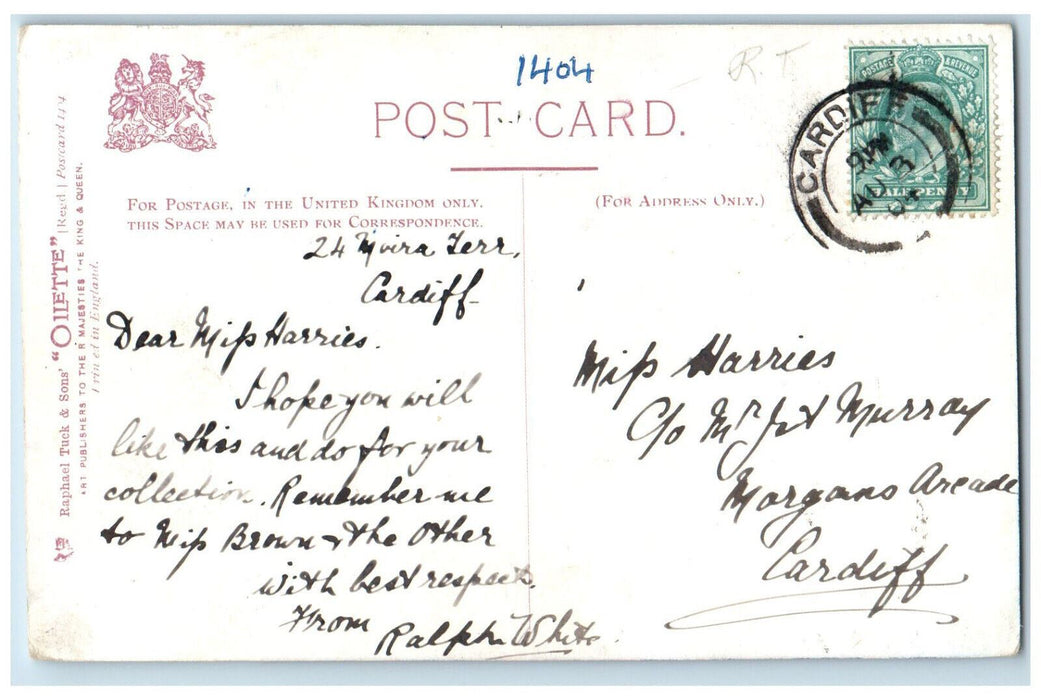 1404
R.T.
POST CARD.
FOR POSTAGE, IN THE UNITED KINGDOM ONLY.
THIS SPACE MAY BE USED FOR CORRESPONDENCE.
(FOR ADDRESS ONLY.)
POSTAGE & REVENUE
HALFPENNY
CARDIFF
AU 3
04
Raphael Tuck & Sons' "OILETTE" [Regd] Postcard
ART PUBLISHERS TO THEIR MAJESTIES THE KING & QUEEN.
Printed in England.
24 Moira Terr.
Cardiff
Dear Miss Harries.
I hope you will
like this and do for your
collection. Remember me
to Miss Brown & the other
with best respects.
From
Ralph White.
Miss Harries
c/o Mr J & Murray
Morgans Arcade
Cardiff